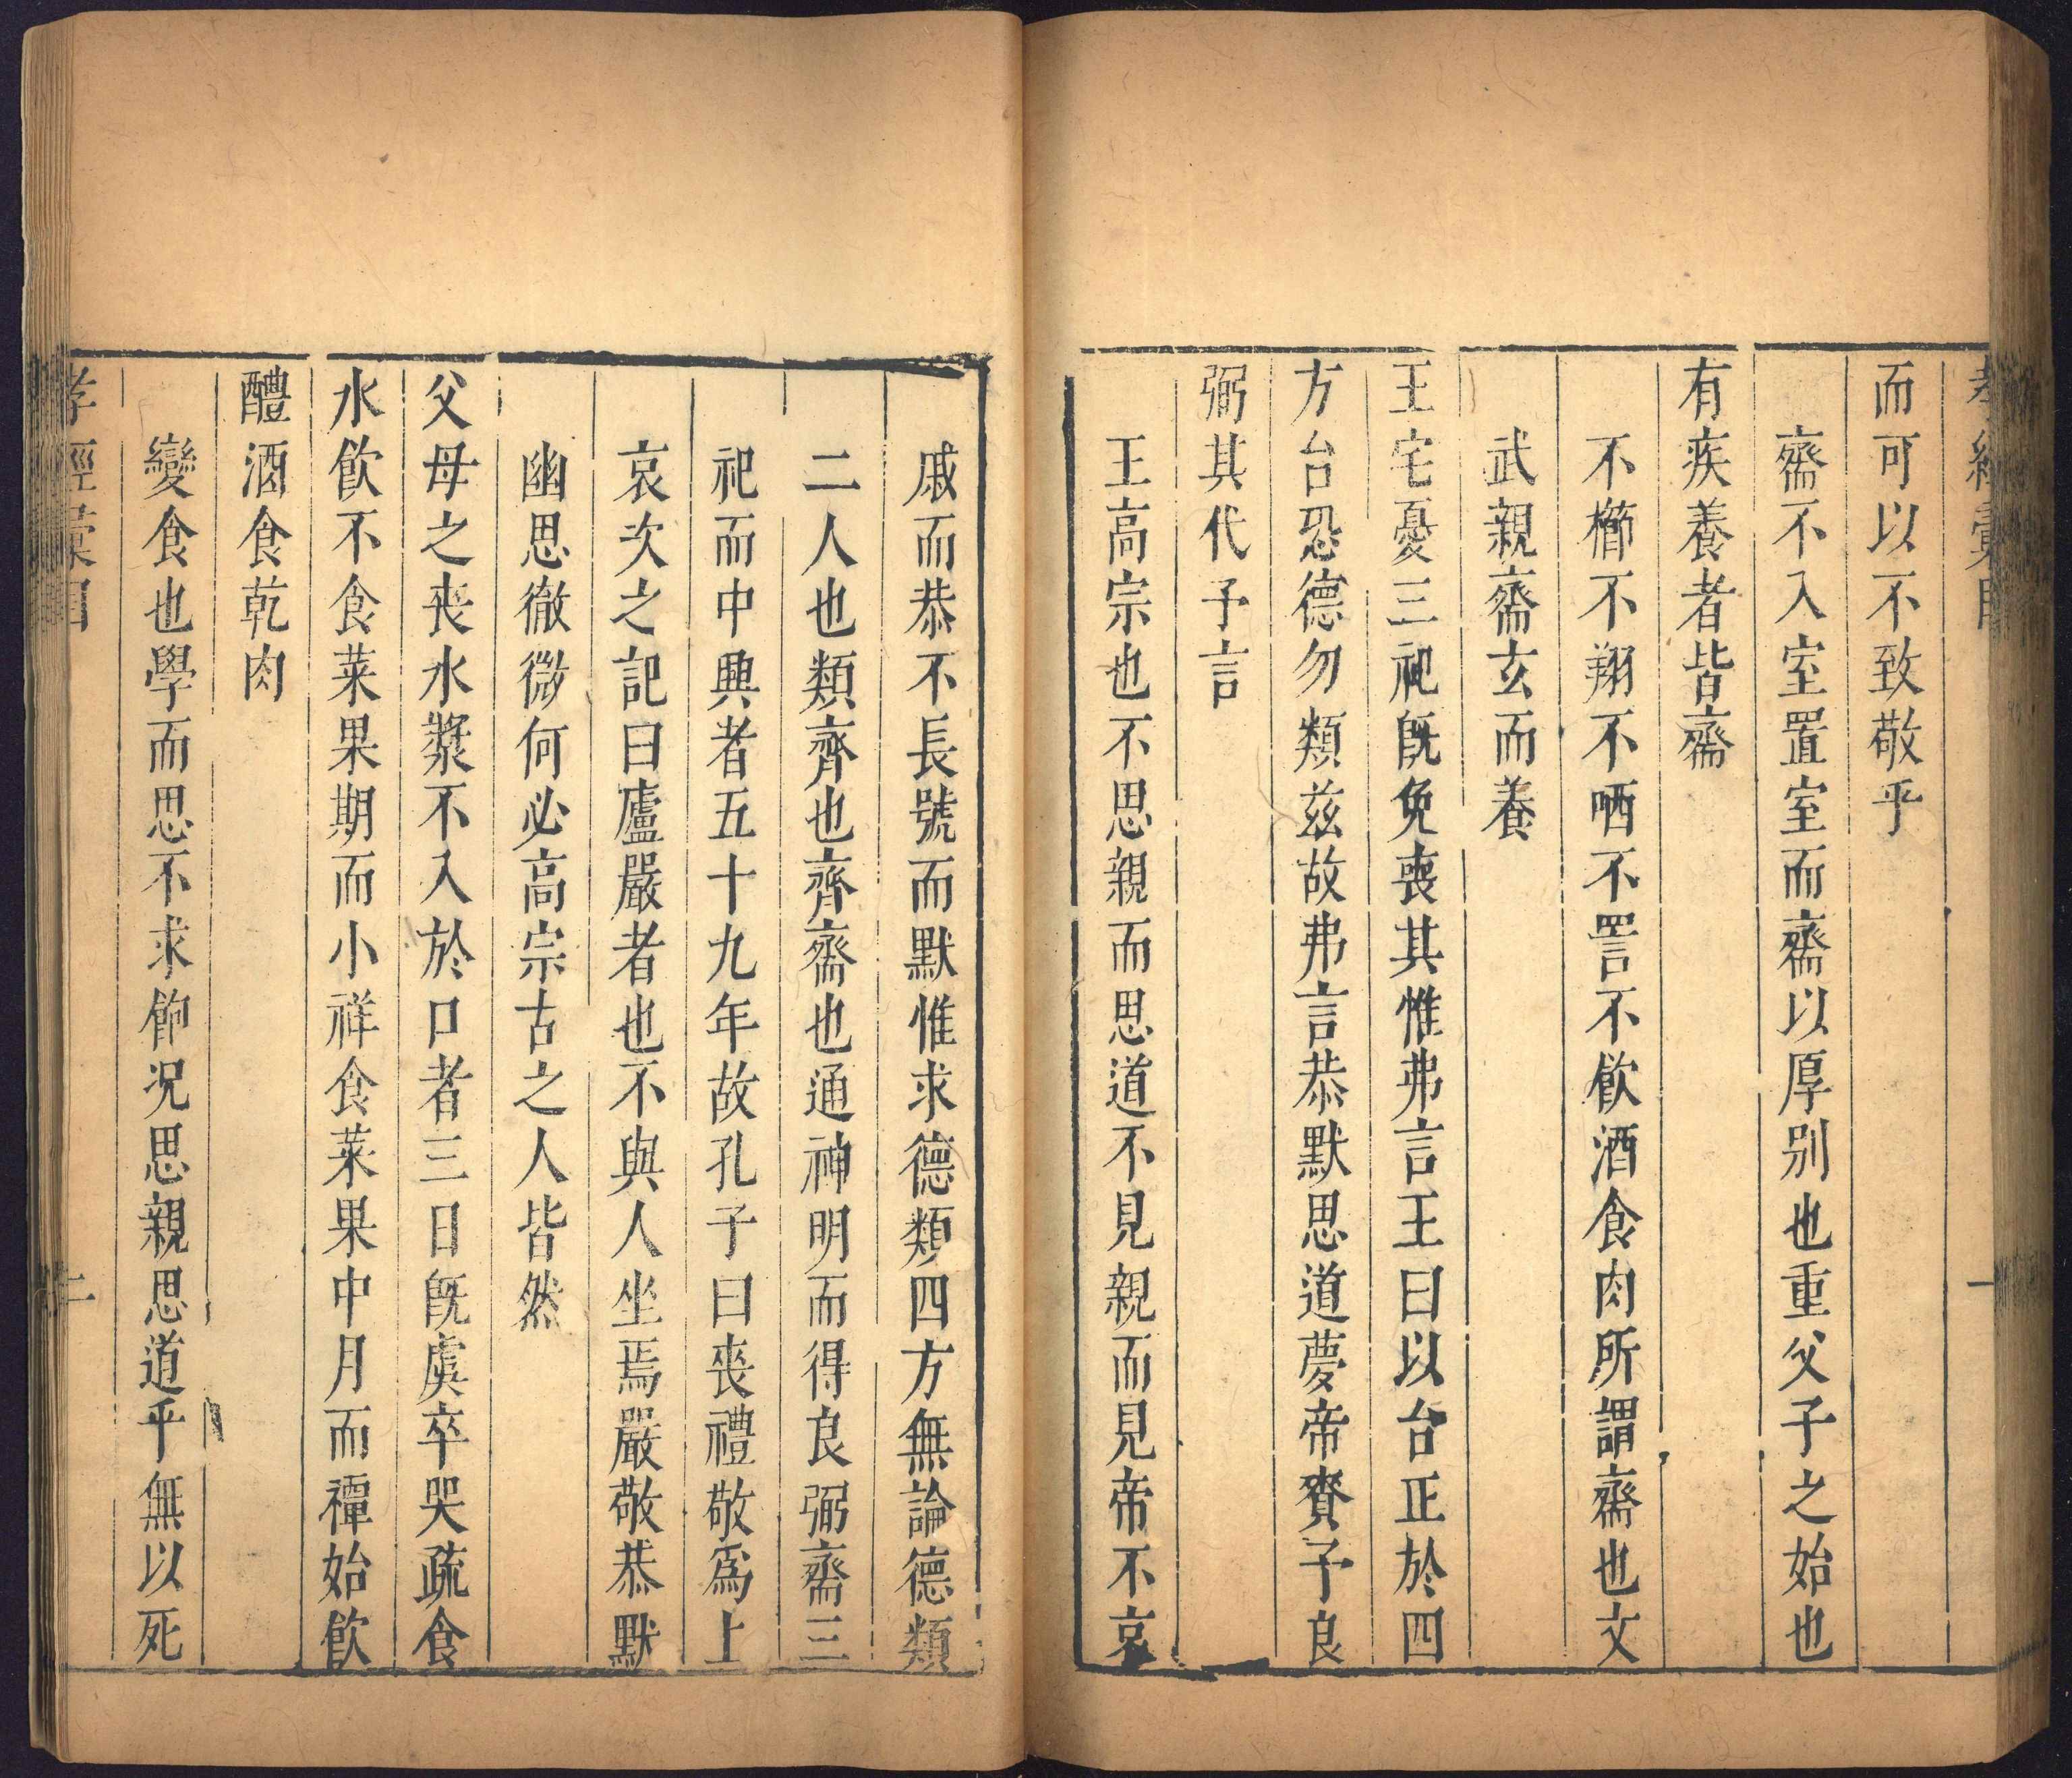 孝經彙目 一
而可以不致敬乎
齋不入室置室而齋以厚别也重父子之始也
有疾養者皆齋
不櫛不翔不哂不詈不飮酒食肉所謂齋也文
武親齋玄而養
王宅憂三祀旣免喪其惟弗言王曰以台正於四
方台恐德勿類兹故弗言恭默思道夢帝賚予良
弼其代予言
王高宗也不思親而思道不見親而見帝不哀
戚而恭不長號而默惟求德類四方無論德類
二人也類齊也齊齋也通神明而得良弼齋三
祀而中興者五十九年故孔子曰喪禮敬爲上
哀次之記曰廬嚴者也不與人坐焉嚴敬恭默
幽思徹微何必高宗古之人皆然
父母之喪水漿不入於口者三日旣虞卒哭疏食
水飮不食菜果期而小祥食菜果中月而禫始飮
醴酒食乾肉
變食也學而思不求飽况思親思道乎無以死
孝經彙目 二